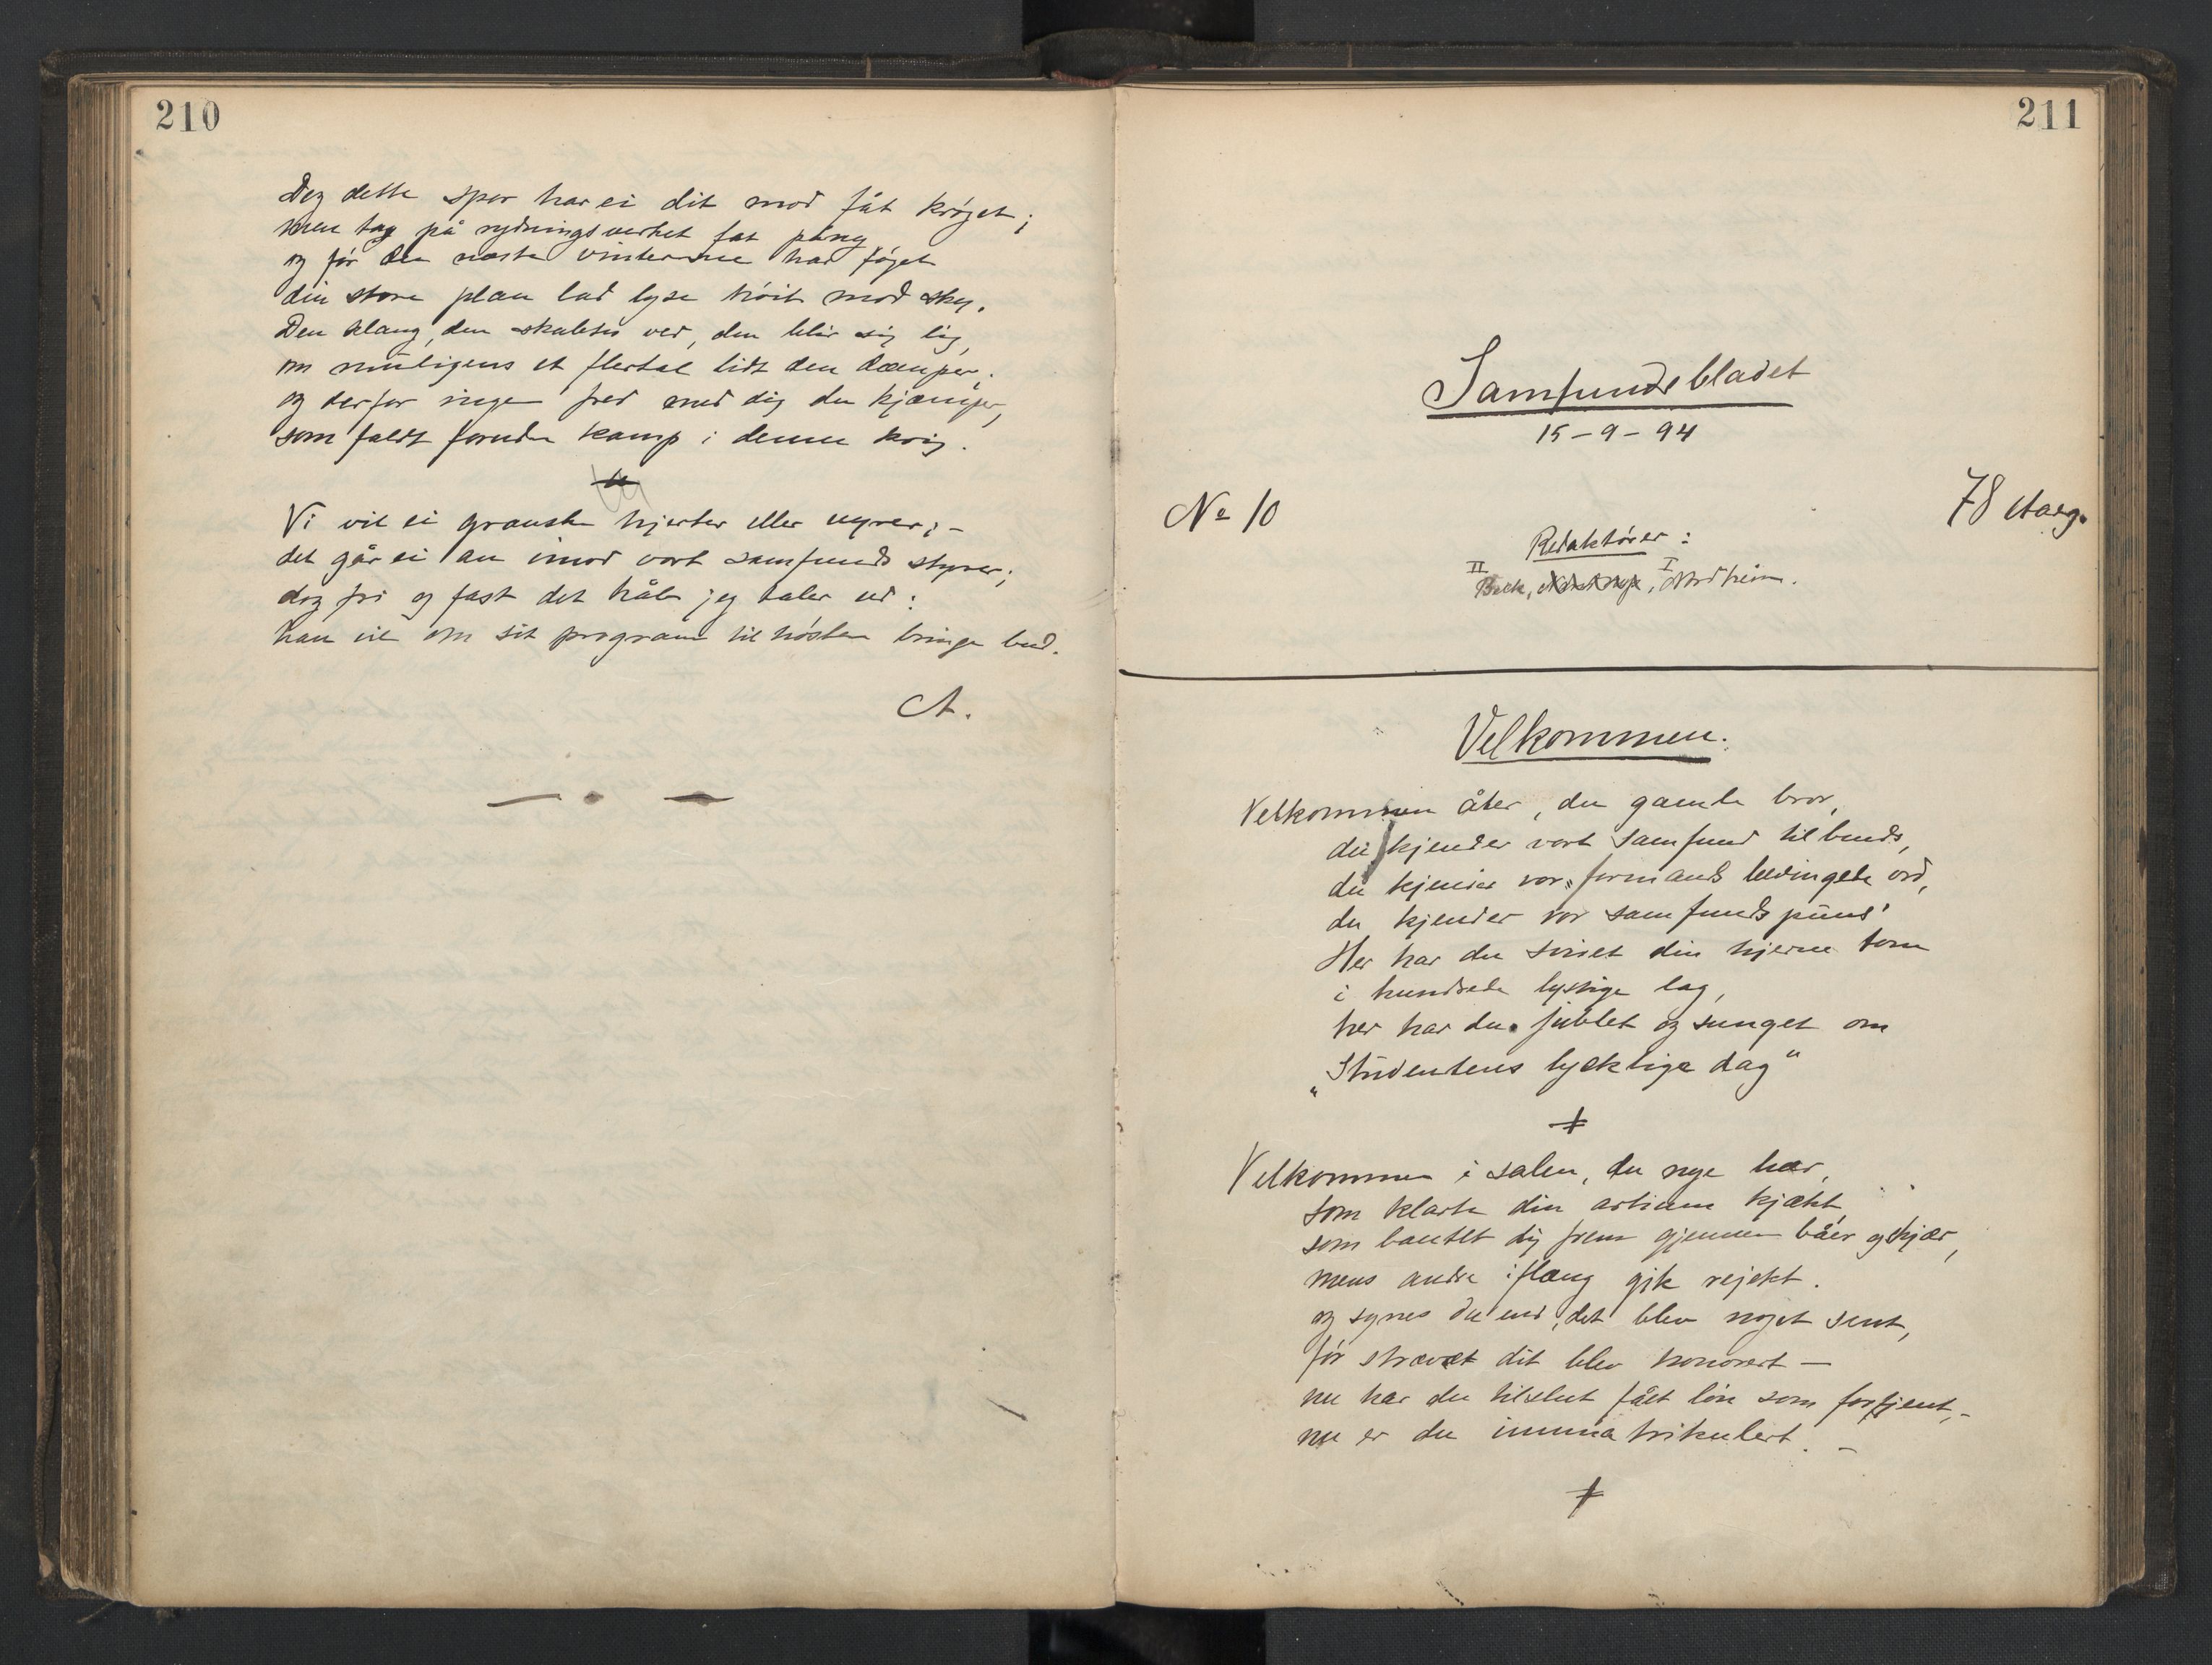 210
Dog dette spor har ei dit mod fåt krøget;
men tag på rydningsverket fat påny
og før den næste vintersne har føget
din store plan lad lyse høit mod sky.
Den klang, den skabtes ved, den blir sig lig,
om muligens et flertal lidt den dæmper;
og derfor ingen fred med dig du kjæmper,
som faldt foruden kamp i denne krig.
Vi vil ei granske hjerter eller nyrer; -
det går ei an imod vort samfunds styrer;
dog fri og fast det håb jeg taler ud:
han vil om sit program til høsten bringe bud.
A.
211
Samfundsbladet
15-9-94
No 10
78 Aarg.
Redaktører:
II I
Beck, Nordheim.
Velkommen.
Velkommen åter, du gamle bror,
du kjender vort samfund tilbunds,
du kjender vor formands bevingede ord,
du kjender vor samfunds puns!
Her har du sviret din hjerne tom
i hundrede lystige lag,
her har du jublet og sunget om
„Studentens lycklige dag"
Velkommen i salen, du nye hær,
som klarte din artium kjækt,
som bautet dig frem gjennem båer og skjær,
mens andre iflæng gik rejekt.
og synes du end, det blev noget sent,
før strævet dit blev honorert —
nu har du tilslut fået løn som fortjent, -
nu er du immatrikulert. -